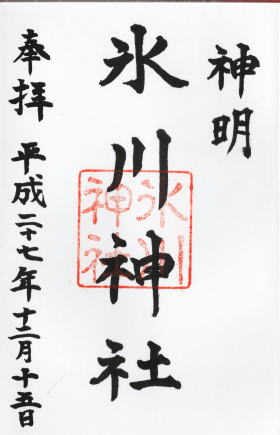 神明
氷川神社
氷川神社
奉拝 平成二十七年十二月十五日